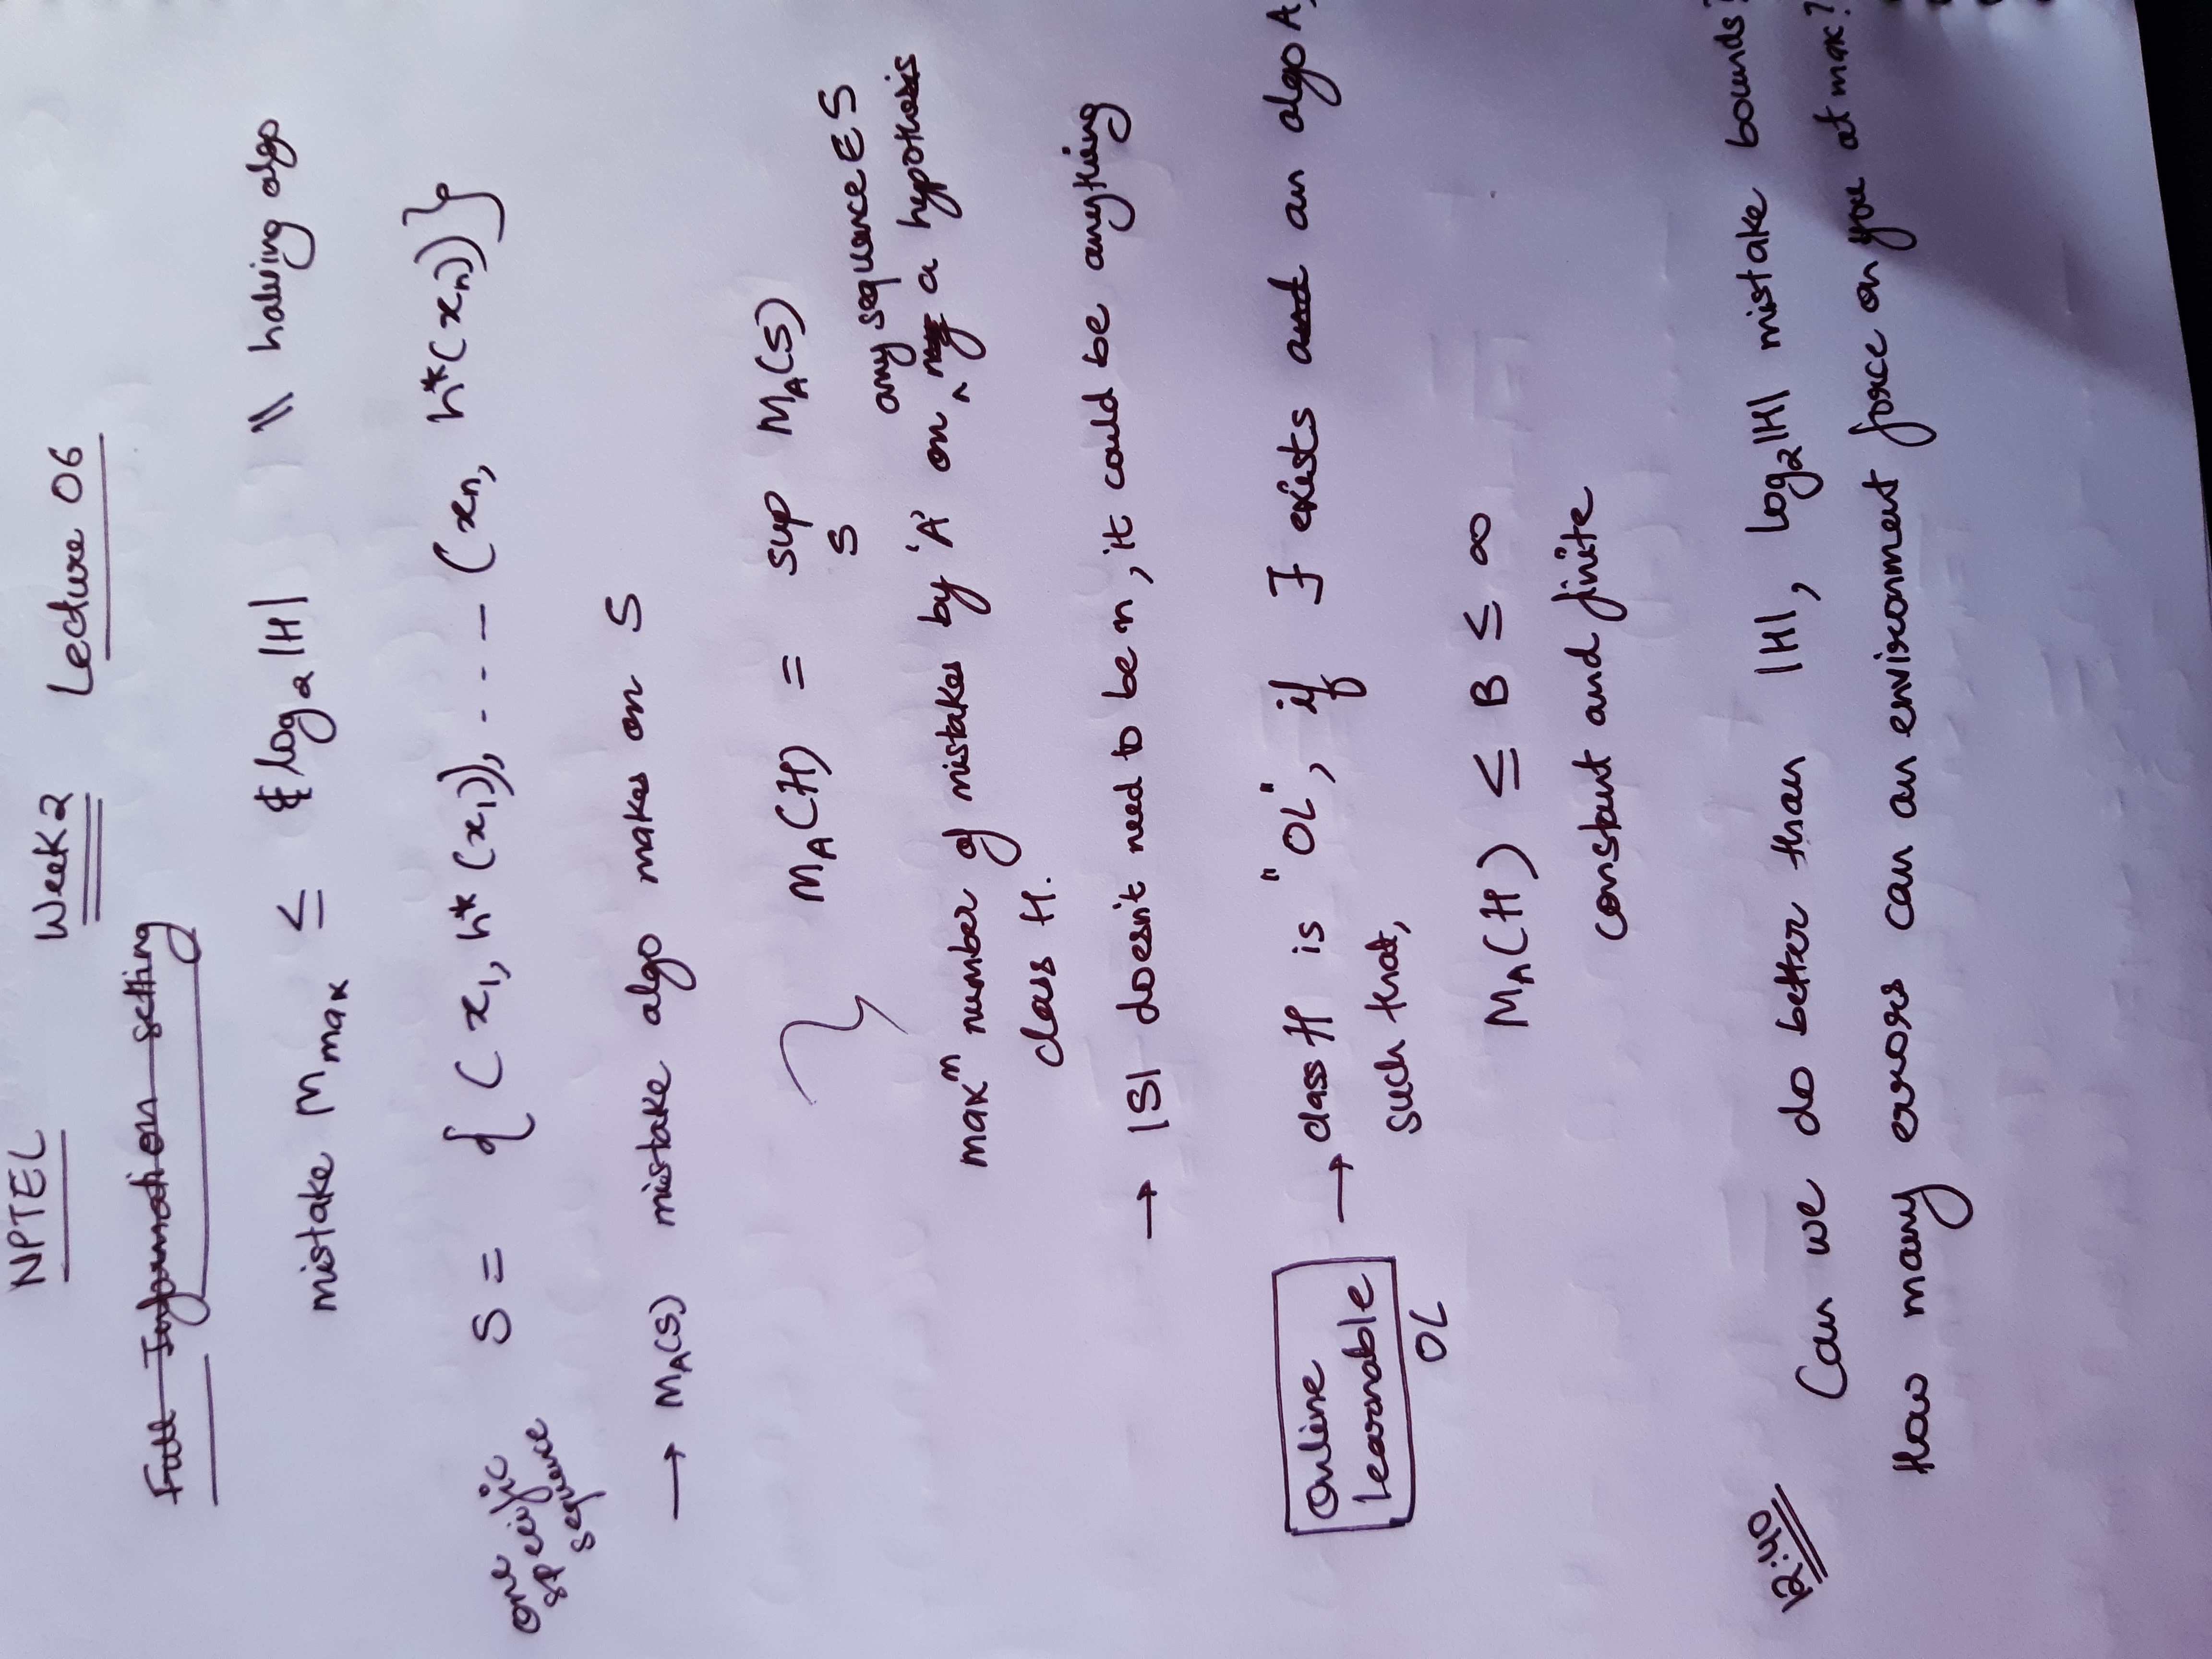 NPTEL Week 2 Lecture 06
Full Information setting
mistake M max ≤ log₂ |H| \\ halving algo
one specific sequence S = { (x₁, h*(x₁)), . . . – (xn, h*(xn))}
→ MA(S) mistake algo makes on S
MA(H) = sup MA(S)
S
any sequence ∈ S
maxᵐ number of mistakes by 'A' on ^ a hypothesis
class H.
→ |S| doesn't need to be n, it could be anything
Online Learnable OL → class H is "OL", if ∃ exists and an algo A,
such that,
MA(H) ≤ B ≤ ∞
constant and finite
12:40
Can we do better than |H|, log₂|H| mistake bounds?
How many errors can an environment force on you at max?